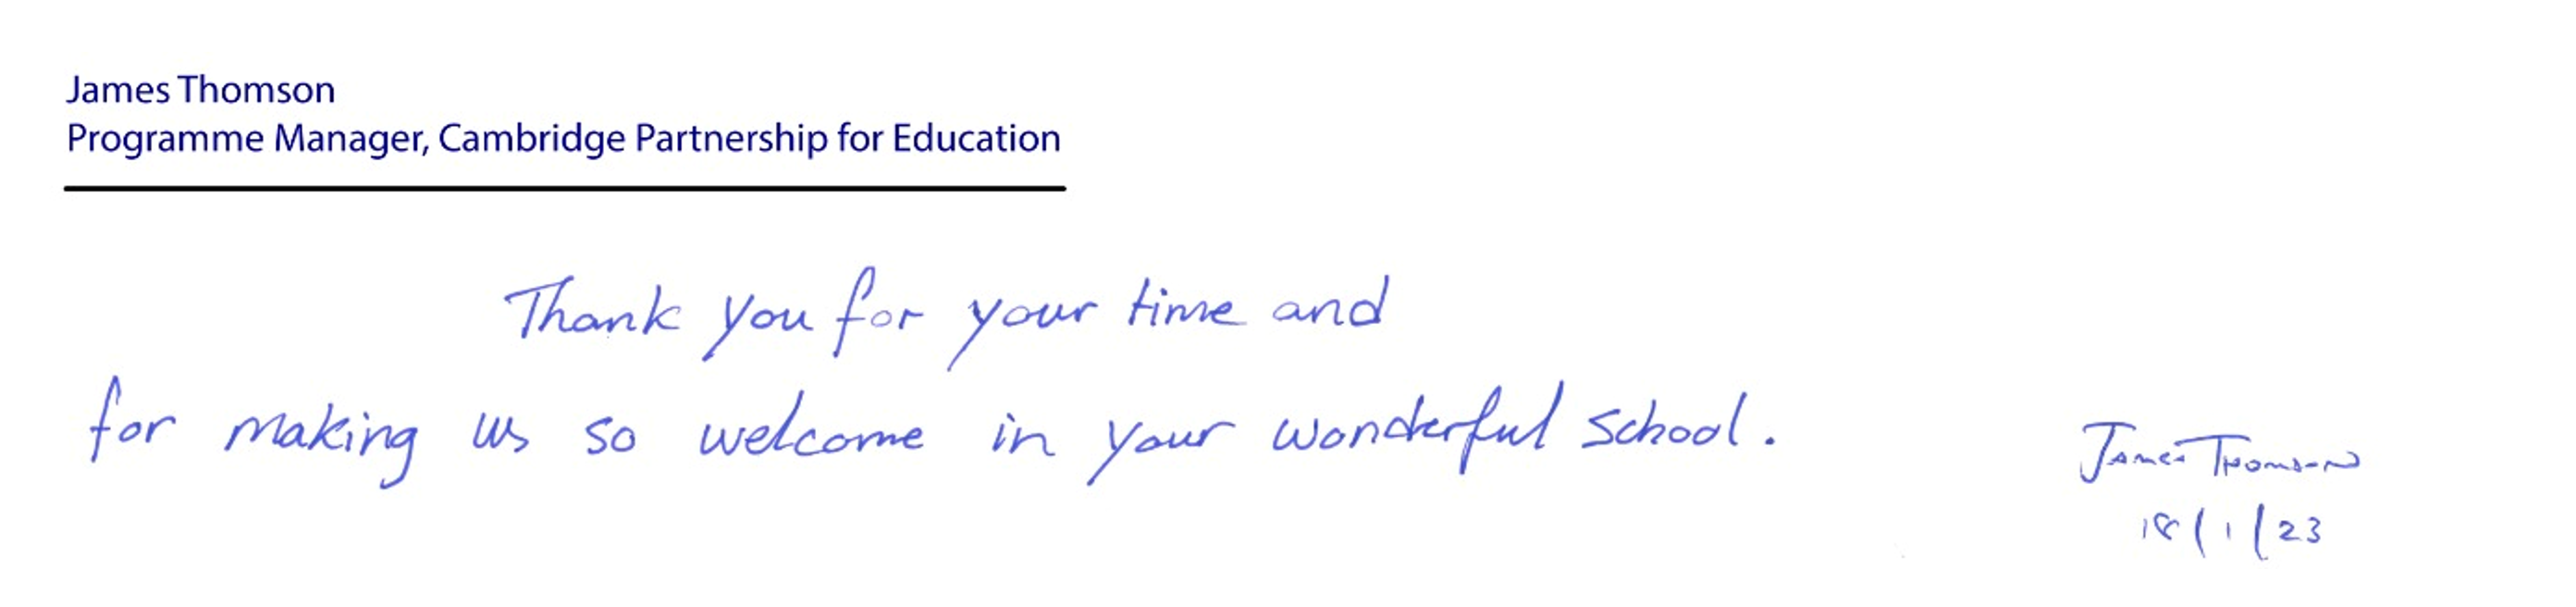 James Thomson
Programme Manager, Cambridge Partnership for Education
Thank you for your time and
for making us so welcome in your wonderful school.
James Thomson
18/1/23